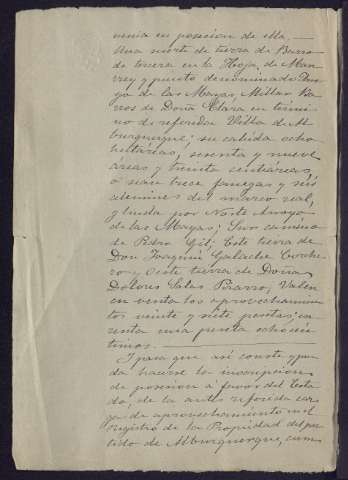 venia en posesion de ella.
Una suerte de tierra de Barro
de tercera en la Hoja, de Mon
rrey y puesto denominado Arro
yo de las Mayas, Millar Ba
rros de Doña Clara en térmi
no de referida Villa de Al
burquerque; su cabida ocho
hectáreas, sesenta y nueve
áreas y treinta centiáreas,
ó sean trece fanegas y seis
celemines del marco real,
y linda por Norte Arroyo
de las Mayas; Sur camino
de Pedro Gil; Este tierra de
Don Joaquin Galache Corche
ro y Oeste tierra de Doña
Dolores Salas Pizarro; Valen
en venta los aprovechamien
tos veinte y siete pesetas; ca
renta una peseta ocho cén
timos.
Y para que así conste y pue
da hacerse la inscripcion
de posesion á favor del Esta
do, de la antes referida car
ga de aprovechamiento en el
registro de la Propiedad del par
tido de Alburquerque, cum